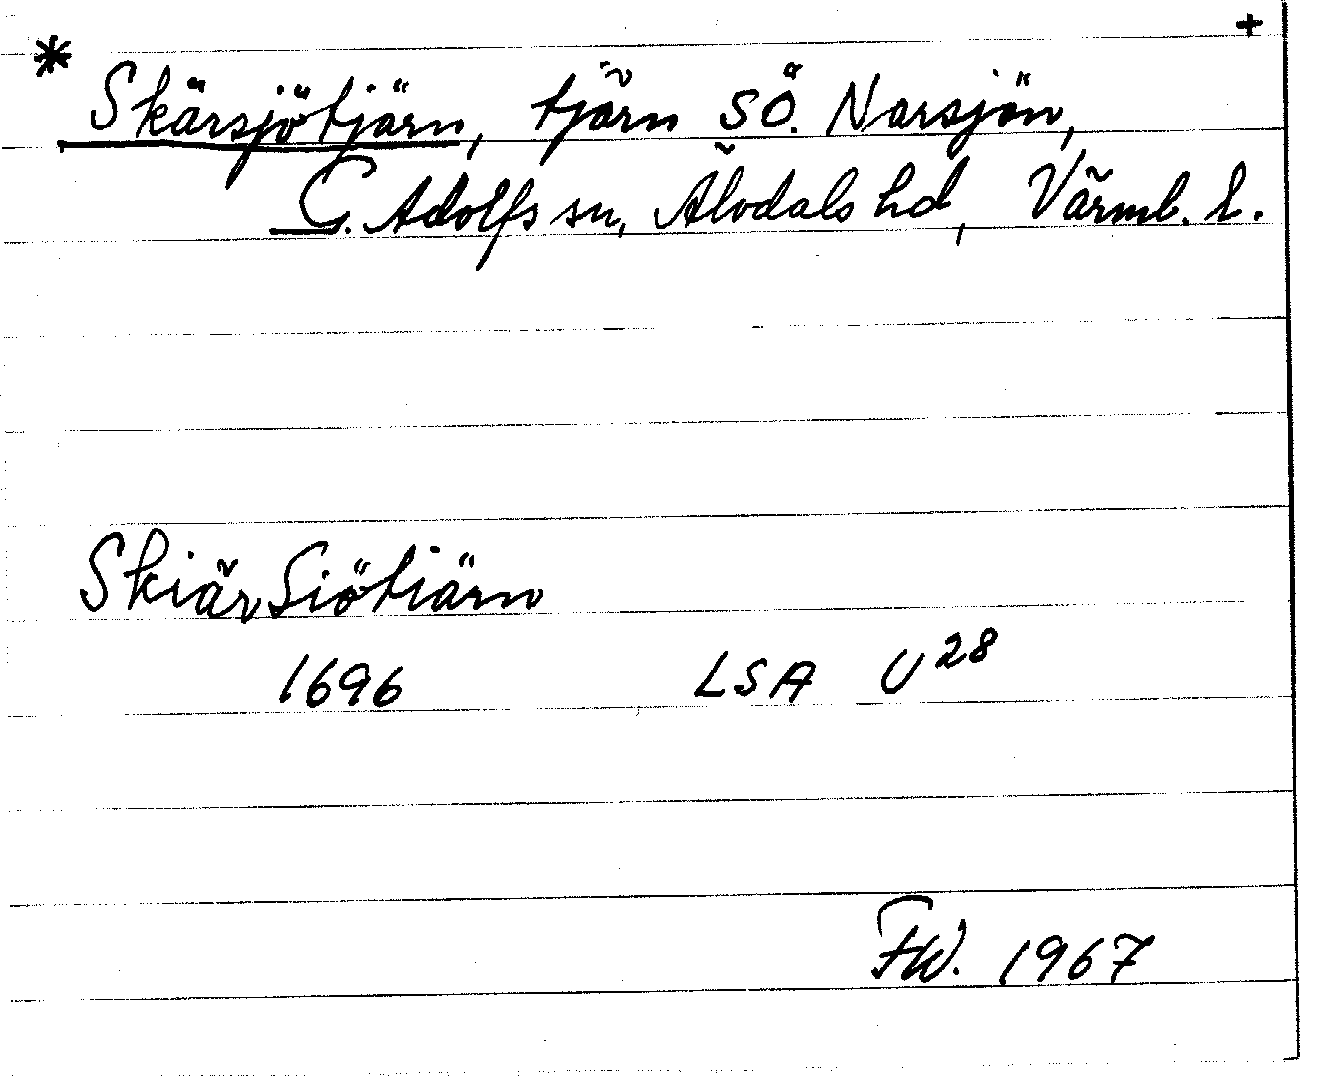 * +
Skärsjötjärn, tjärn SÖ. Narsjön,
G. Adolfs sn, Älvdals hd, Värml. l.
SkiärSiötiärn
1696 LSA U28
FW. 1967